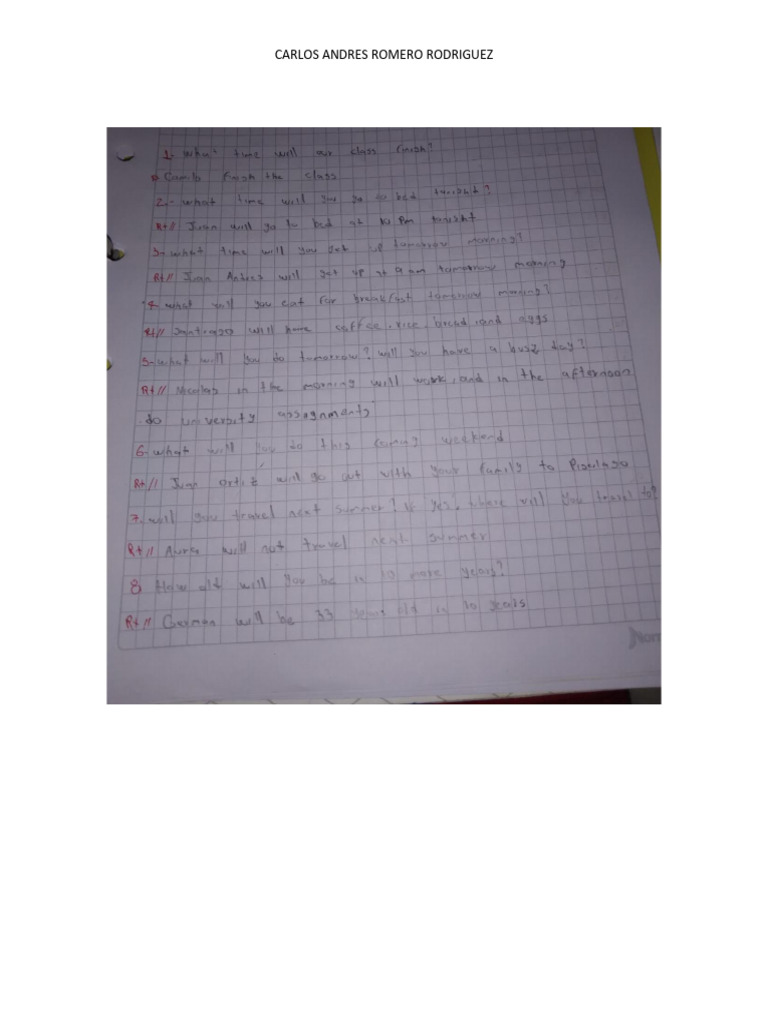 CARLOS ANDRES ROMERO RODRIGUEZ
1- What time will our class finish?
Camilo finish the class
2-- what time will you go to bed tonight?
Rt// Juan will go to bed at 10 Pm tonight
3- what time will you get up tomorrow morning?
Rt// Juan Andres will get up at 9 am tomorrow morning
4- what will you eat for breakfast tomorrow morning?
Rt// Santiago will have coffee, rice, bread, and eggs
5- what will you do tomorrow? will you have a busy day?
Rt// Nicolas in the morning will work, and in the afternoon
do university assignments
6- what will you do this coming weekend
Rt// Juan ortiz will go out with your family to
7- will you travel next summer? If yes, where will you travel to?
Rt// will not travel next summer
8 How old will you be in 10 more years?
Rt// German will be 33 years old in 10 years